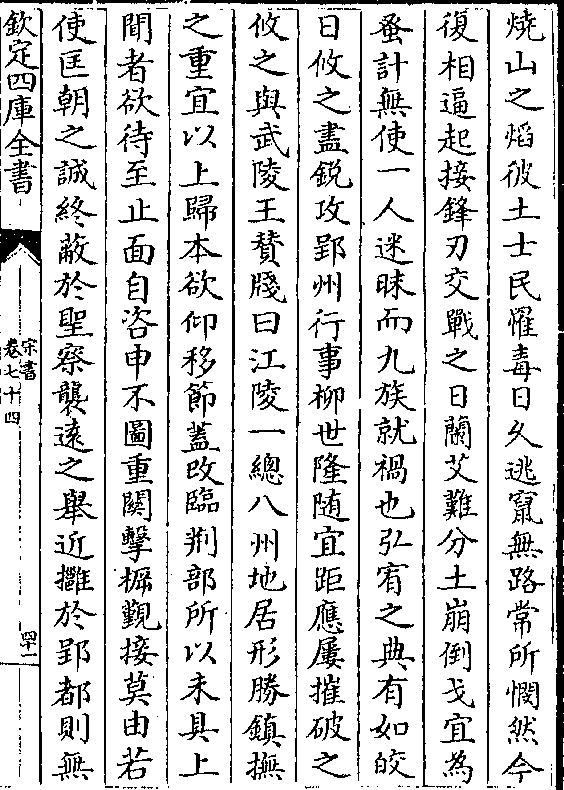 燒山之熖彼土士民罹毒日久逃竄無路常所憫然今
復相逼起接鋒刃交戰之日蘭艾難分土崩倒戈宜為
蚤計無使一人迷昧而九族就禍也弘宥之典有如皎
日攸之盡鋭攻郢州行事柳世隆随宜距應屢摧破之
攸之與武陵王贊牋曰江陵一總八州地居形勝鎮撫
之重宜以上歸本欲仰移節蓋改臨荆部所以未具上
聞者欲待至止面自咨申不圖重關擊覲接莫由若
使匡朝之誠終蔽於聖察襲遠之舉近擁於郢都則無
欽定四庫全書
宋書
卷七十四
四一